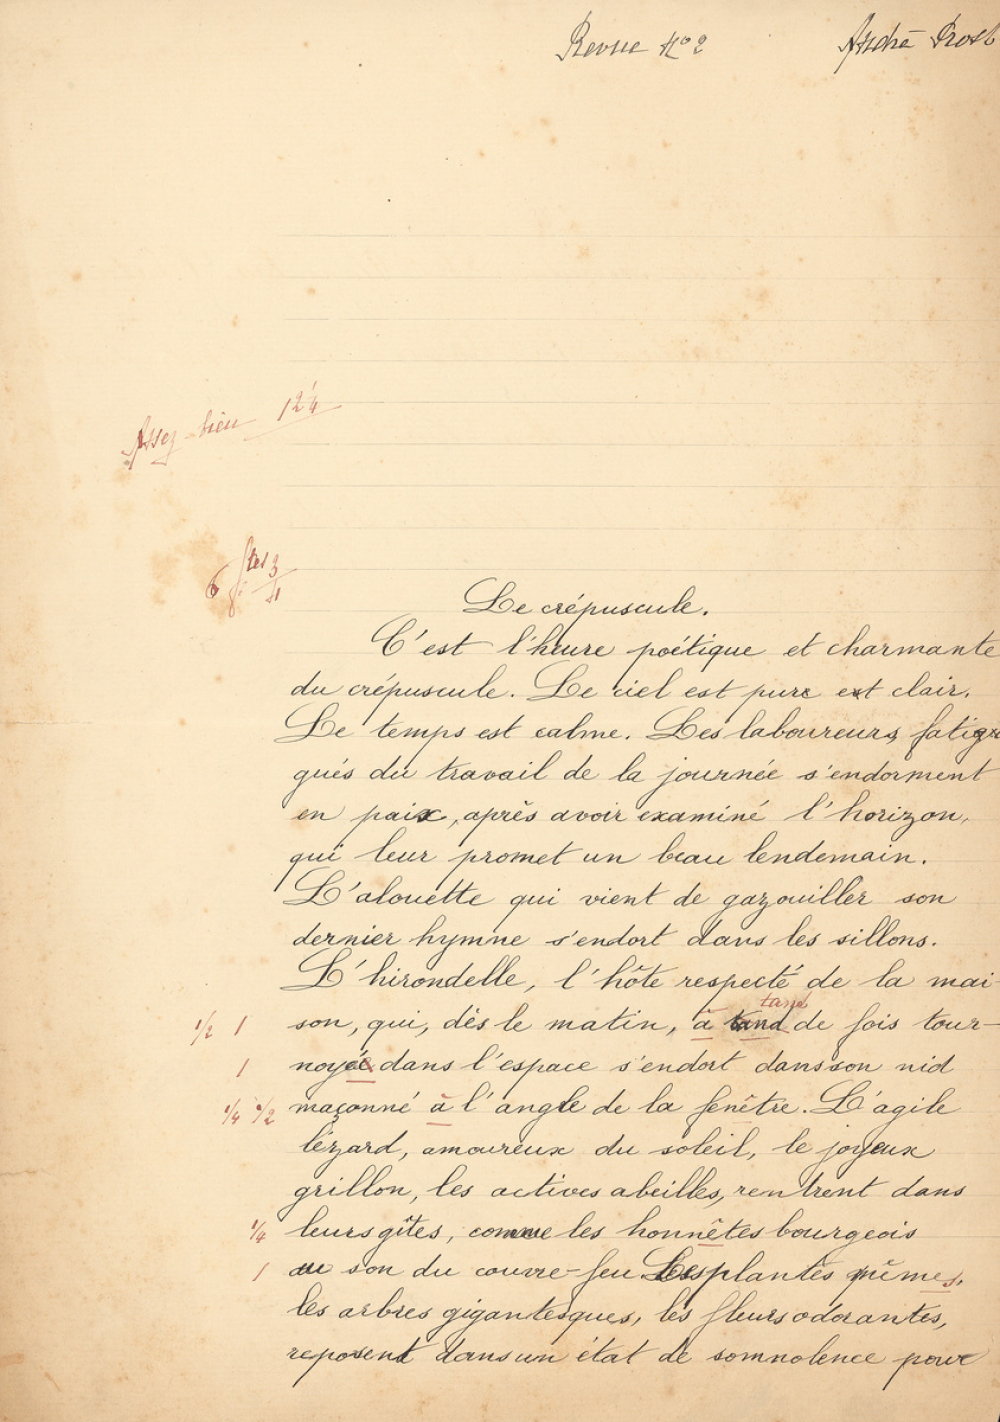 Revue Nº 2
André Prost
Assez bien 12 1/4
Le crépuscule.
C'est l'heure poétique et charmante
du crépuscule. Le ciel est pure est clair.
Le temps est calme. Les laboureurs, fatig
gués du travail de la journée s'endorment
en paix, après avoir examiné l'horizon,
qui leur promet un beau lendemain.
L'alouette qui vient de gazouiller son
dernier hymne s'endort dans les sillons.
L'hirondelle, l'hôte respecté de la mai-
tand
1/2 1 son, qui, dès le matin, à tand de fois tour-
1 noyée dans l'espace s'endort dans son nid
1/4 1/2 maçonné à l'angle de la fenêtre. L'agile
lézard, amoureux du soleil, le joyeux
grillon, les actives abeilles, rentrent dans
1/4 leurs gîtes, comme les honnêtes bourgeois
1 au son du couvre-feu Les plantes mêmes,
les arbres gigantesques, les fleurs odorantes,
reposent dans un état de somnolence pour